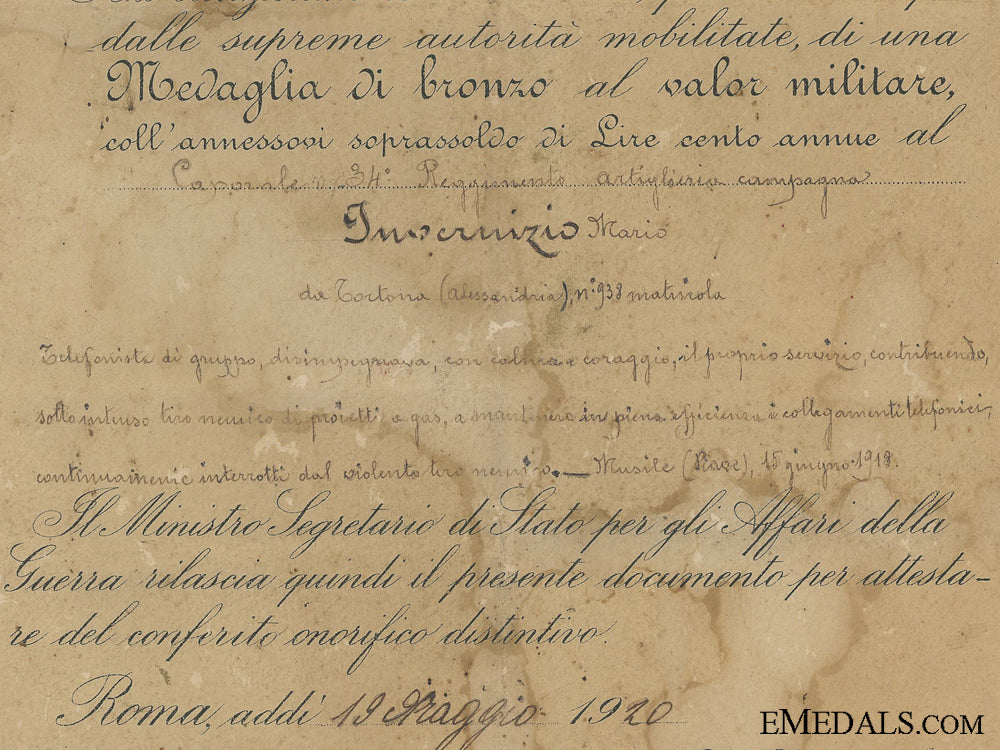 dalle supreme autorità mobilitate, di una
Medaglia di bronzo al valor militare,
coll'annessovi soprassoldo di Lire cento annue al
Caporale 34° Reggimento artiglieria campagna
Invernizio Mario
da Tortona (Alessandria), n° 938 matricola
Telefonista di gruppo, disimpegnava, con calma e coraggio, il proprio servizio, contribuendo,
sotto intenso tiro nemico di proietti a gas, a mantenere in piena efficienza i collegamenti telefonici,
continuamente interrotti dal violento tiro nemico. — Musile (Piave), 15 giugno 1918.
Il Ministro Segretario di Stato per gli Affari della
Guerra rilascia quindi il presente documento per attesta-
re del conferito onorifico distintivo.
Roma, addì 19 Maggio 1920
EMEDALS.COM